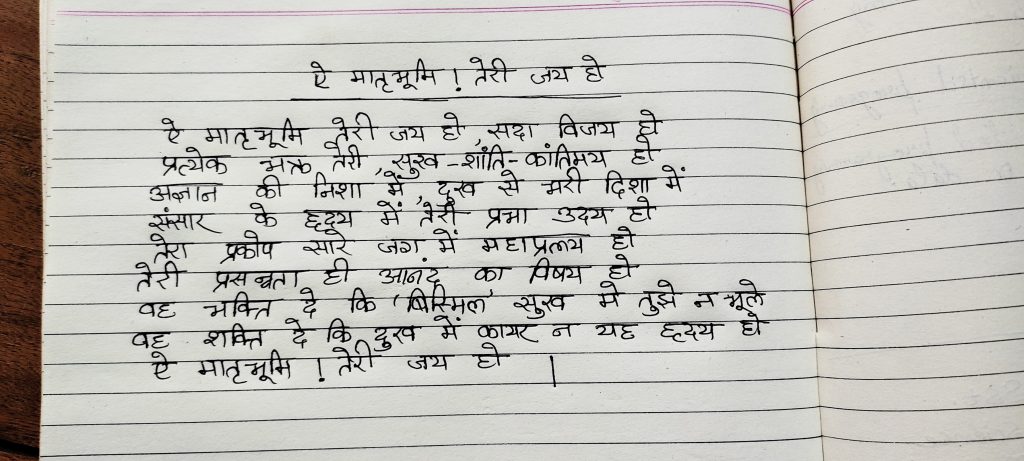 ऐ मातृभूमि ! तेरी जय हो
ऐ मातृभूमि तेरी जय हो, सदा विजय हो
प्रत्येक भक्त तेरी, सुख-शांति-कांतिमय हो
अज्ञान की निशा में, दुख से भरी दिशा में
संसार के हृदय में तेरी प्रभा उदय हो
तेरा प्रकोप सारे जग में महाप्रलय हो
तेरी प्रसन्नता ही आनंद का विषय हो
वह भक्ति दे कि 'बिस्मिल' सुख में तुझे न भूले
वह शक्ति दे कि दुख में कायर न यह हृदय हो
ऐ मातृभूमि ! तेरी जय हो ।